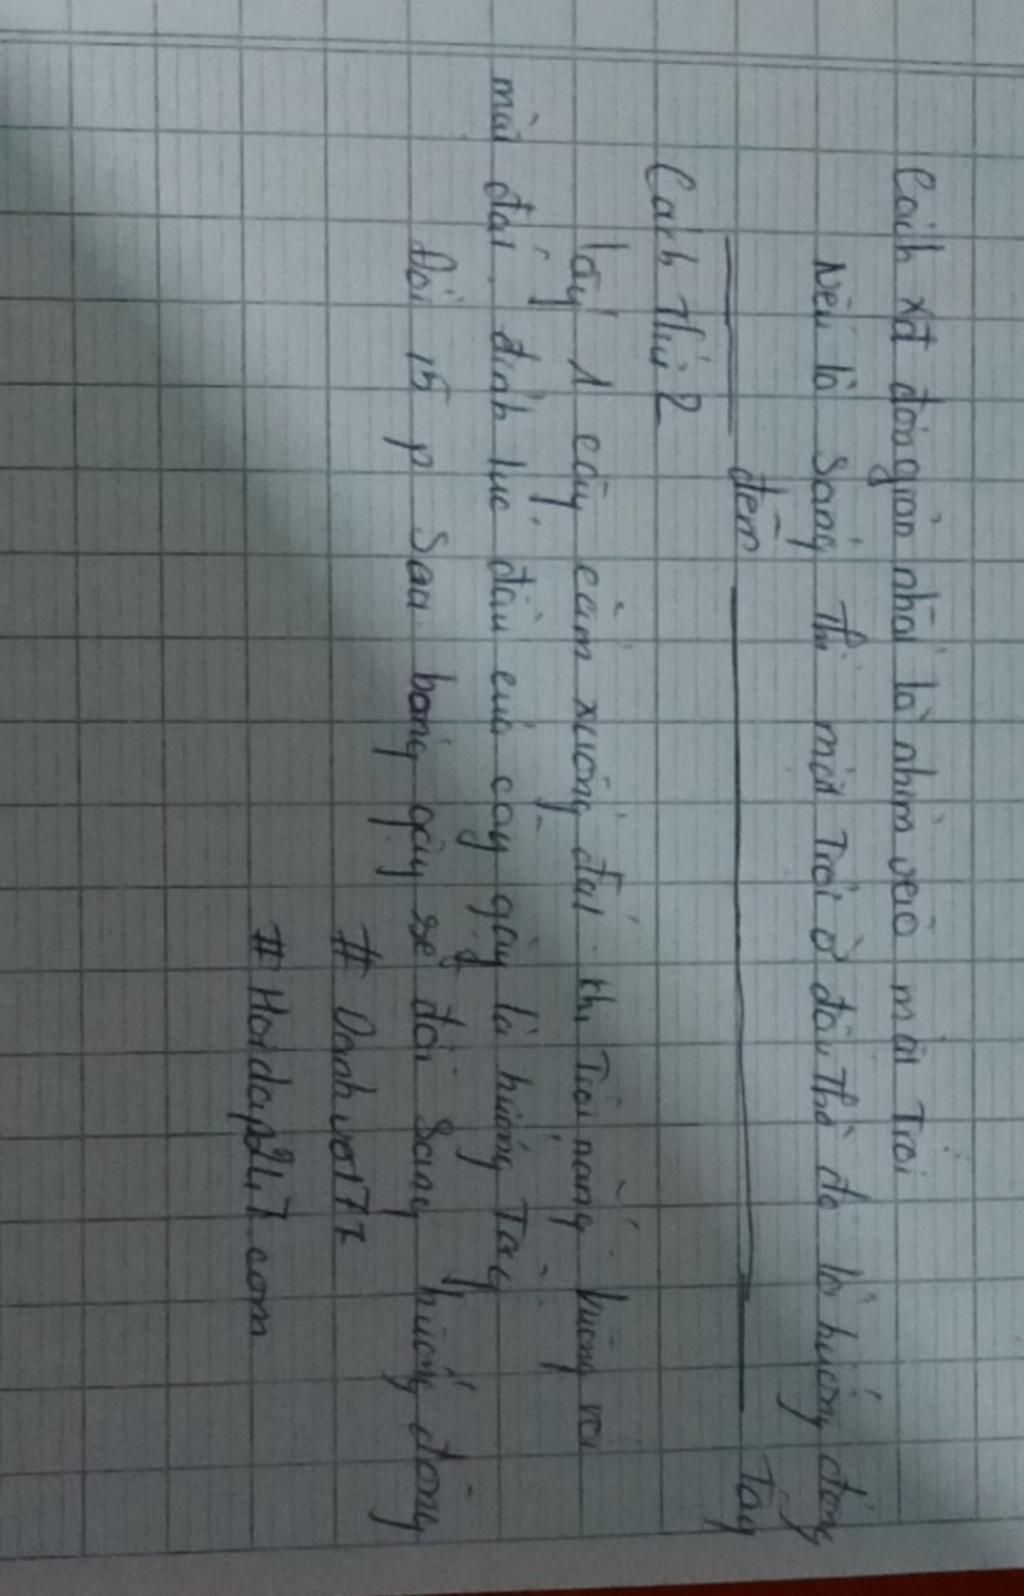 Cách xđ đơn giản nhất là nhìn vào mặt Trời
Nếu là Sáng Thì mặt Trời ở đâu Thì đó là hướng đông
____ đêm ____________ Tây
Cách Thứ 2
lấy 1 cây cắm xuống đất khi Trời nắng vuông với
mặt đất. đỉnh lúc đầu của cây gậy là hướng Tây
Đợi 15 p Sau bóng gậy sẽ đổi Sang hướng đông
# Danhvo177
# Hoidap247.com